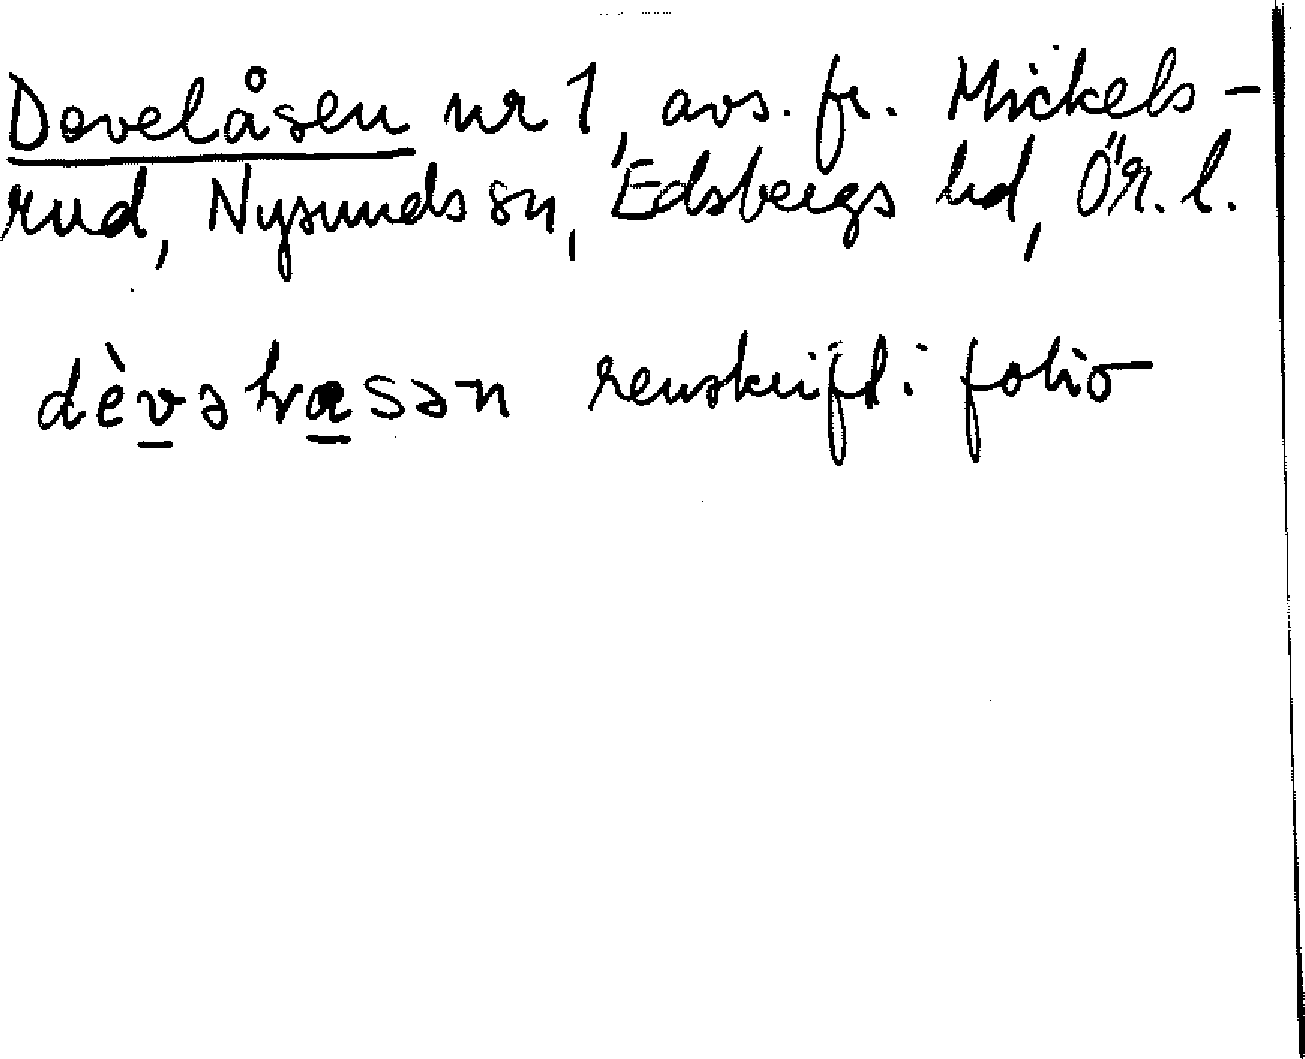 Dovelåsen nr 1, avs. fr. Mickels-
rud, Nysunds sn, Edsbergs hd, Ör. l.
renskrift i folio